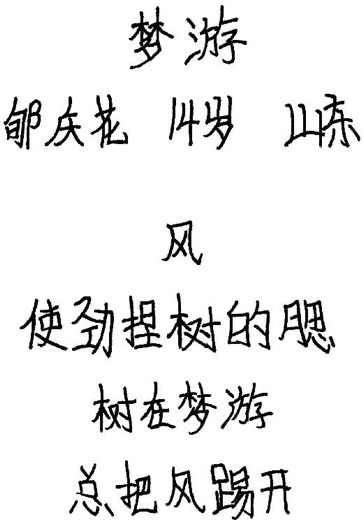 梦游
郇庆花 14岁 山东
风
使劲捏树的腮
树在梦游
总把风踢开